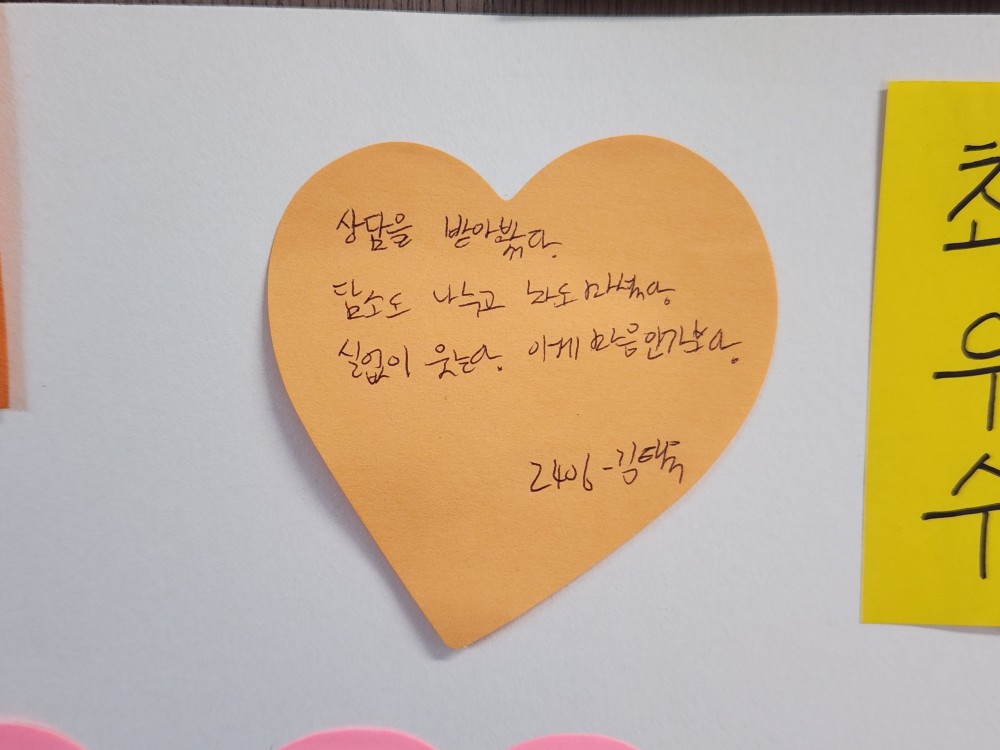 상담을 받아봤다.
담소도 나누고 차도 마셨다.
실없이 웃는다. 이게 마음인가보다.
2406 - 김택
초
우
수